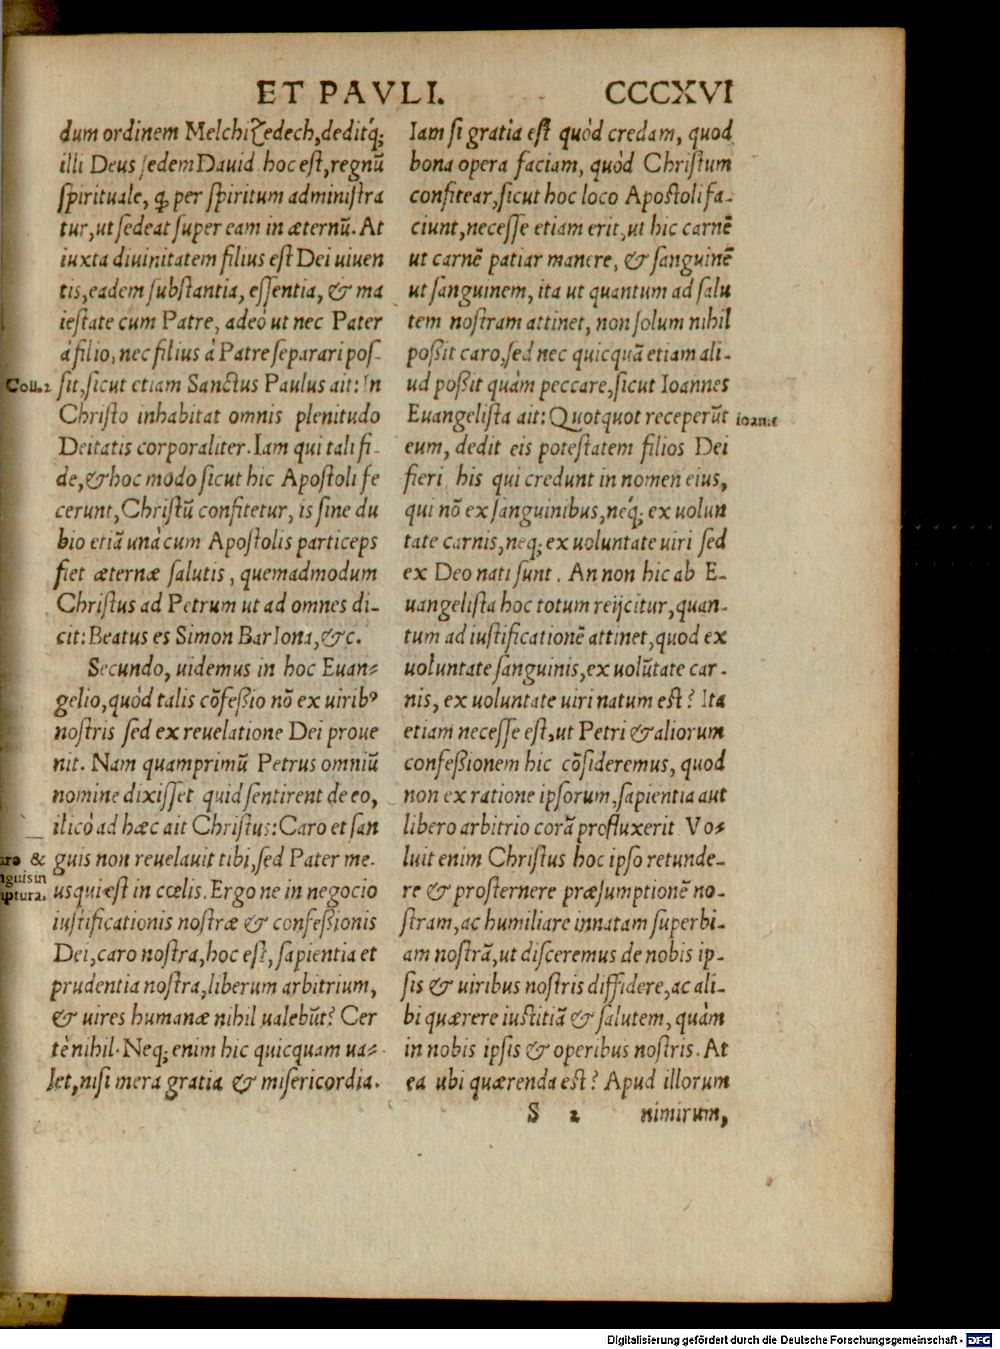 ET PAVLI. CCCXVI
dum ordinem Melchizedech, deditq́;
illi Deus sedem Dauid hoc est, regnũ
spirituale, q̃ per spiritum administra
tur, ut sedeat super eam in æternũ. At
iuxta diuinitatem filius est Dei uiuen
tis, eadem substantia, essentia, & ma
iestate cum Patre, adeò ut nec Pater
à filio, nec filius à Patre separari pos-
Coll.2
sit, sicut etiam Sanctus Paulus ait: In
Christo inhabitat omnis plenitudo
Deitatis corporaliter. Iam qui tali fi-
de, & hoc modo sicut hic Apostoli fe
cerunt, Christũ confitetur, is sine du
bio etiã unà cum Apostolis particeps
fiet æternæ salutis, quemadmodum
Christus ad Petrum ut ad omnes di-
cit: Beatus es Simon BarIona, &c.
Secundo, uidemus in hoc Euan-
gelio, quòd talis cõfeßio nõ ex uirib⁹
nostris sed ex reuelatione Dei proue
nit. Nam quamprimũ Petrus omniũ
nomine dixisset quid sentirent de eo,
ilicò ad hæc ait Christus: Caro et san
guis non reuelauit tibi, sed Pater me-
us qui est in cœlis. Ergo ne in negocio
iustificationis nostræ & confeßionis
Dei, caro nostra, hoc est, sapientia et
prudentia nostra, liberum arbitrium,
& uires humanæ nihil ualebũt? Cer
tè nihil. Neq; enim hic quicquam ua-
let, nisi mera gratia & misericordia.
aro &
nguis in
iptura.
Iam si gratia est quòd credam, quod
bona opera faciam, quòd Christum
confitear, sicut hoc loco Apostoli fa-
ciunt, necesse etiam erit, ut hic carnẽ
ut carnẽ patiar manere, & sanguinẽ
ut sanguinem, ita ut quantum ad salu
tem nostram attinet, non solum nihil
poßit caro, sed nec quicquã etiam ali-
ud poßit quàm peccare, sicut Ioannes
Euangelista ait: Quotquot receperũt
eum, dedit eis potestatem filios Dei
fieri his qui credunt in nomen eius,
qui nõ ex sanguinibus, neq́; ex uolun
tate carnis, neq; ex uoluntate uiri sed
ex Deo nati sunt. An non hic ab E-
uangelista hoc totum reijcitur, quan-
tum ad iustificationẽ attinet, quod ex
uoluntate sanguinis, ex uolũtate car-
nis, ex uoluntate uiri natum est? Ita
etiam necesse est, ut Petri & aliorum
confeßionem hic cõsideremus, quod
non ex ratione ipsorum, sapientia aut
libero arbitrio corã profluxerit Vo-
luit enim Christus hoc ipso retunde-
re & prosternere præsumptionẽ no-
stram, ac humiliare innatam superbi-
am nostrã, ut disceremus de nobis ip-
sis & uiribus nostris diffidere, ac ali-
bi quærere iustitiã & salutem, quàm
in nobis ipsis & operibus nostris. At
ea ubi quærenda est? Apud illorum
S 2 nimirum,
Digitalisierung gefördert durch die Deutsche Forschungsgemeinschaft - DFG